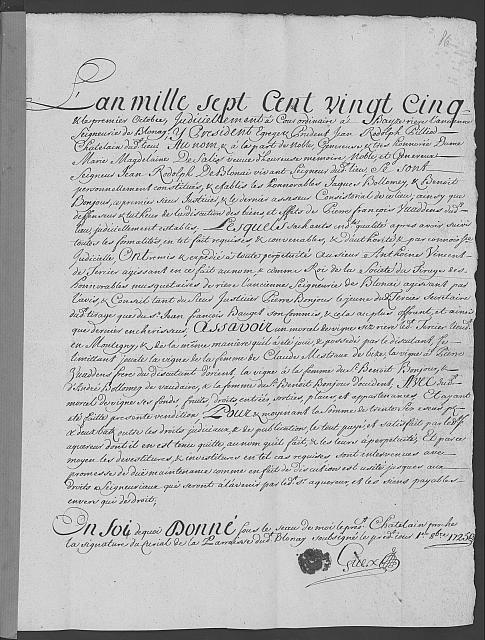 86
L'an mille sept Cent vingt Cinq
& le premier Octobre, Judiciellement à Cour ordinaire à Bays rière l'ancienne
Seigneurie de Blonay. Y President Egrege & Prudent Jean Rodolph
Chatelain dud. lieu Au nom, & à la part de Noble Genereuse & tres honnorée Dame
Marie Magdelaine De Sales veuve d'heureuse memoire Noble & Genereux
Seigneur Jean Rodolph De Blonai vivant Seigneur dud. lieu Se Sont
personnellement constitués, & establis les honnorables Jaques Bollomey, & Benoit
Bonjour, le premier Sieur Justicier, & le dernier assesseur Consistorial de ce lieu, ainsy que
deffenseurs & tutheurs de la discution des biens et effets de Pierre françois Vuaddens dud.
lieu judiciellement establis. Lesquels Sachants en qualité apres avoir suivi
toutes les formalités en tel fait requises, & convenables, & d'authorité & par connoiss.ce
Judicielle Ont remis & expedié à toute perpetuité au sieur Anthoene Vincent
de Tercier agissant en ce fait au nom & comme Roi de la Societé du Tirage des
honnorables mousquetaires de rière l'ancienne Seigneurie de Blonai agissant par
l'avis, & Conseil tant du Sieur Justicier Pierre Bonjour le jeune dud. Tercier Secretaire
dud. tirage que du Sr. Jean françois Bauget son Commis, & cela au plus offrant, et ainsi
que dernier encherisseur. Assavoir un morcel de vigne sis vers led. Tercier lieudit
en Montegny, & de la même manière qu'il a été joui, & possedé par le discutant, se
limittant jouxte la vigne de la femme de Claude Mestraux de bize, la vigne à Pierre
Vuaddens frere du discutient d'orient, la vigne à la femme du Sr. Benoit Bonjour, &
d'André Bollomey de vaudaire, & la femme du Sr. Benoit Bonjour d'occident, Avec dud.
morcel de vigne ses fonds fruits, droits entrées, sorties, plaits, et appartenances. Et ayant
été faitte presente vendition Pour & moyenant la somme de trente six escus
& deux bats outre les droits judiciaux, & de publication le tout payé et satisfait par led. Sr.
aquereur dont il en est tenu quitte, au nom qu'il fait, & les leurs à perpetuité, Et par ce
moyen les devestitures, & investitures en tel cas requises sont intervenues avec
promesse de due maintenance comme en fait de discution est usité jusques aux
droits Seigneuriaux qui seront à l'avenir par led. Sr. aquereur et les siens payables
envers qui de droit.
En foi dequoi Donné sous le Sceau de moi le prés. Chatelain
la signature du Curial de la Parroisse dud. Blonay soubsigné le pred. jour 1er 8bre 1725